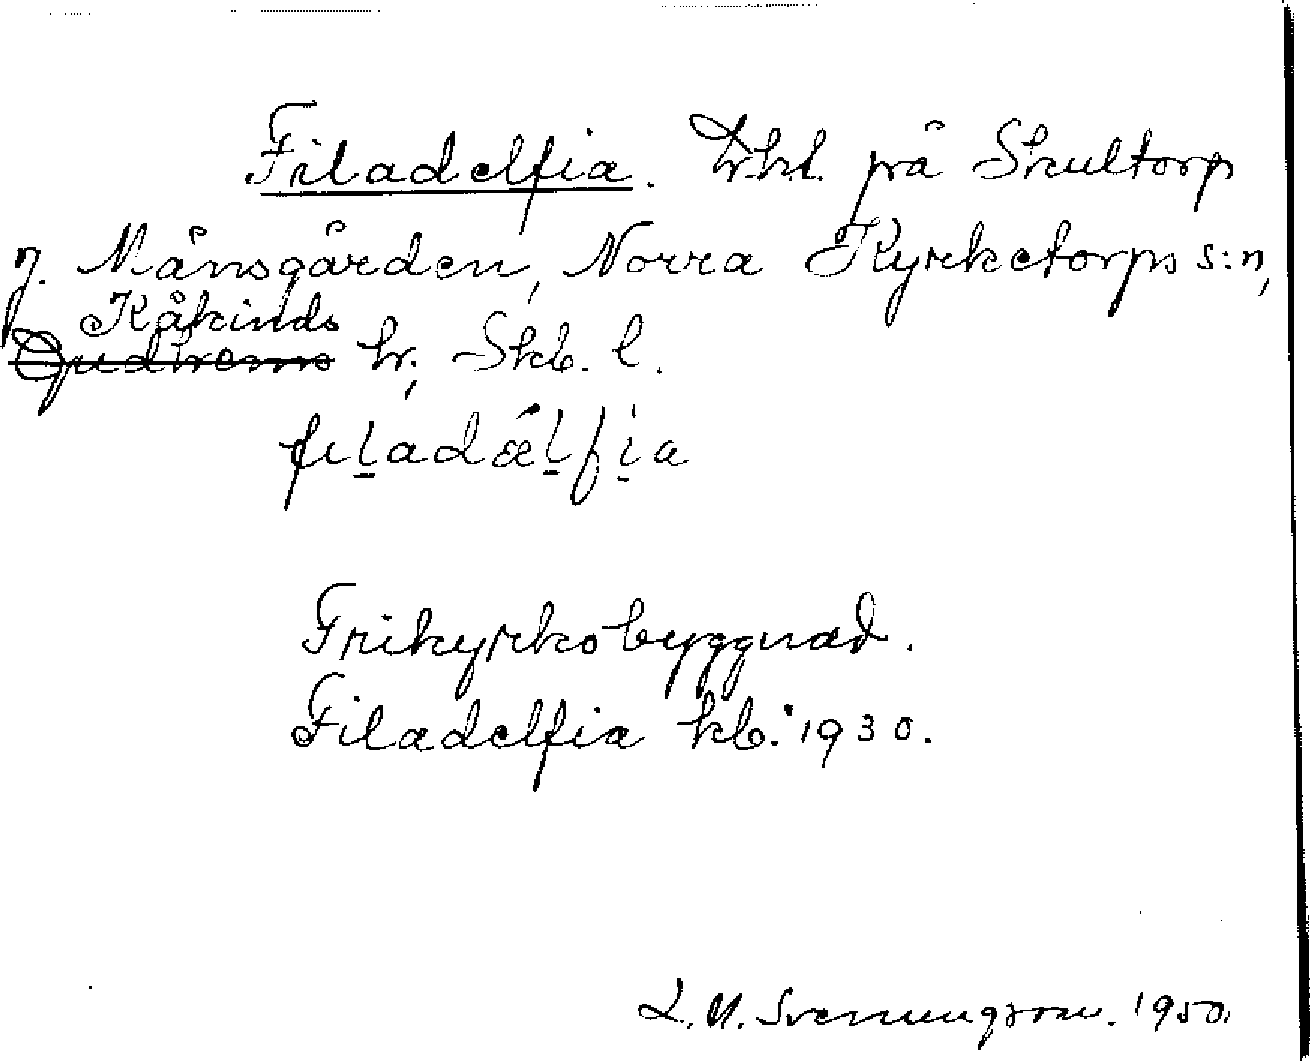 Filadelfia. Lht. på Skultorp
7. Månsgården, Norra Kyrketorps s:n,
Kåkinds
Gudhems hr, Skb. l.
filadǽlfia
Frikyrkobyggnad.
Filadelfia kb. 1930.
L. M. Svenungsson. 1950.